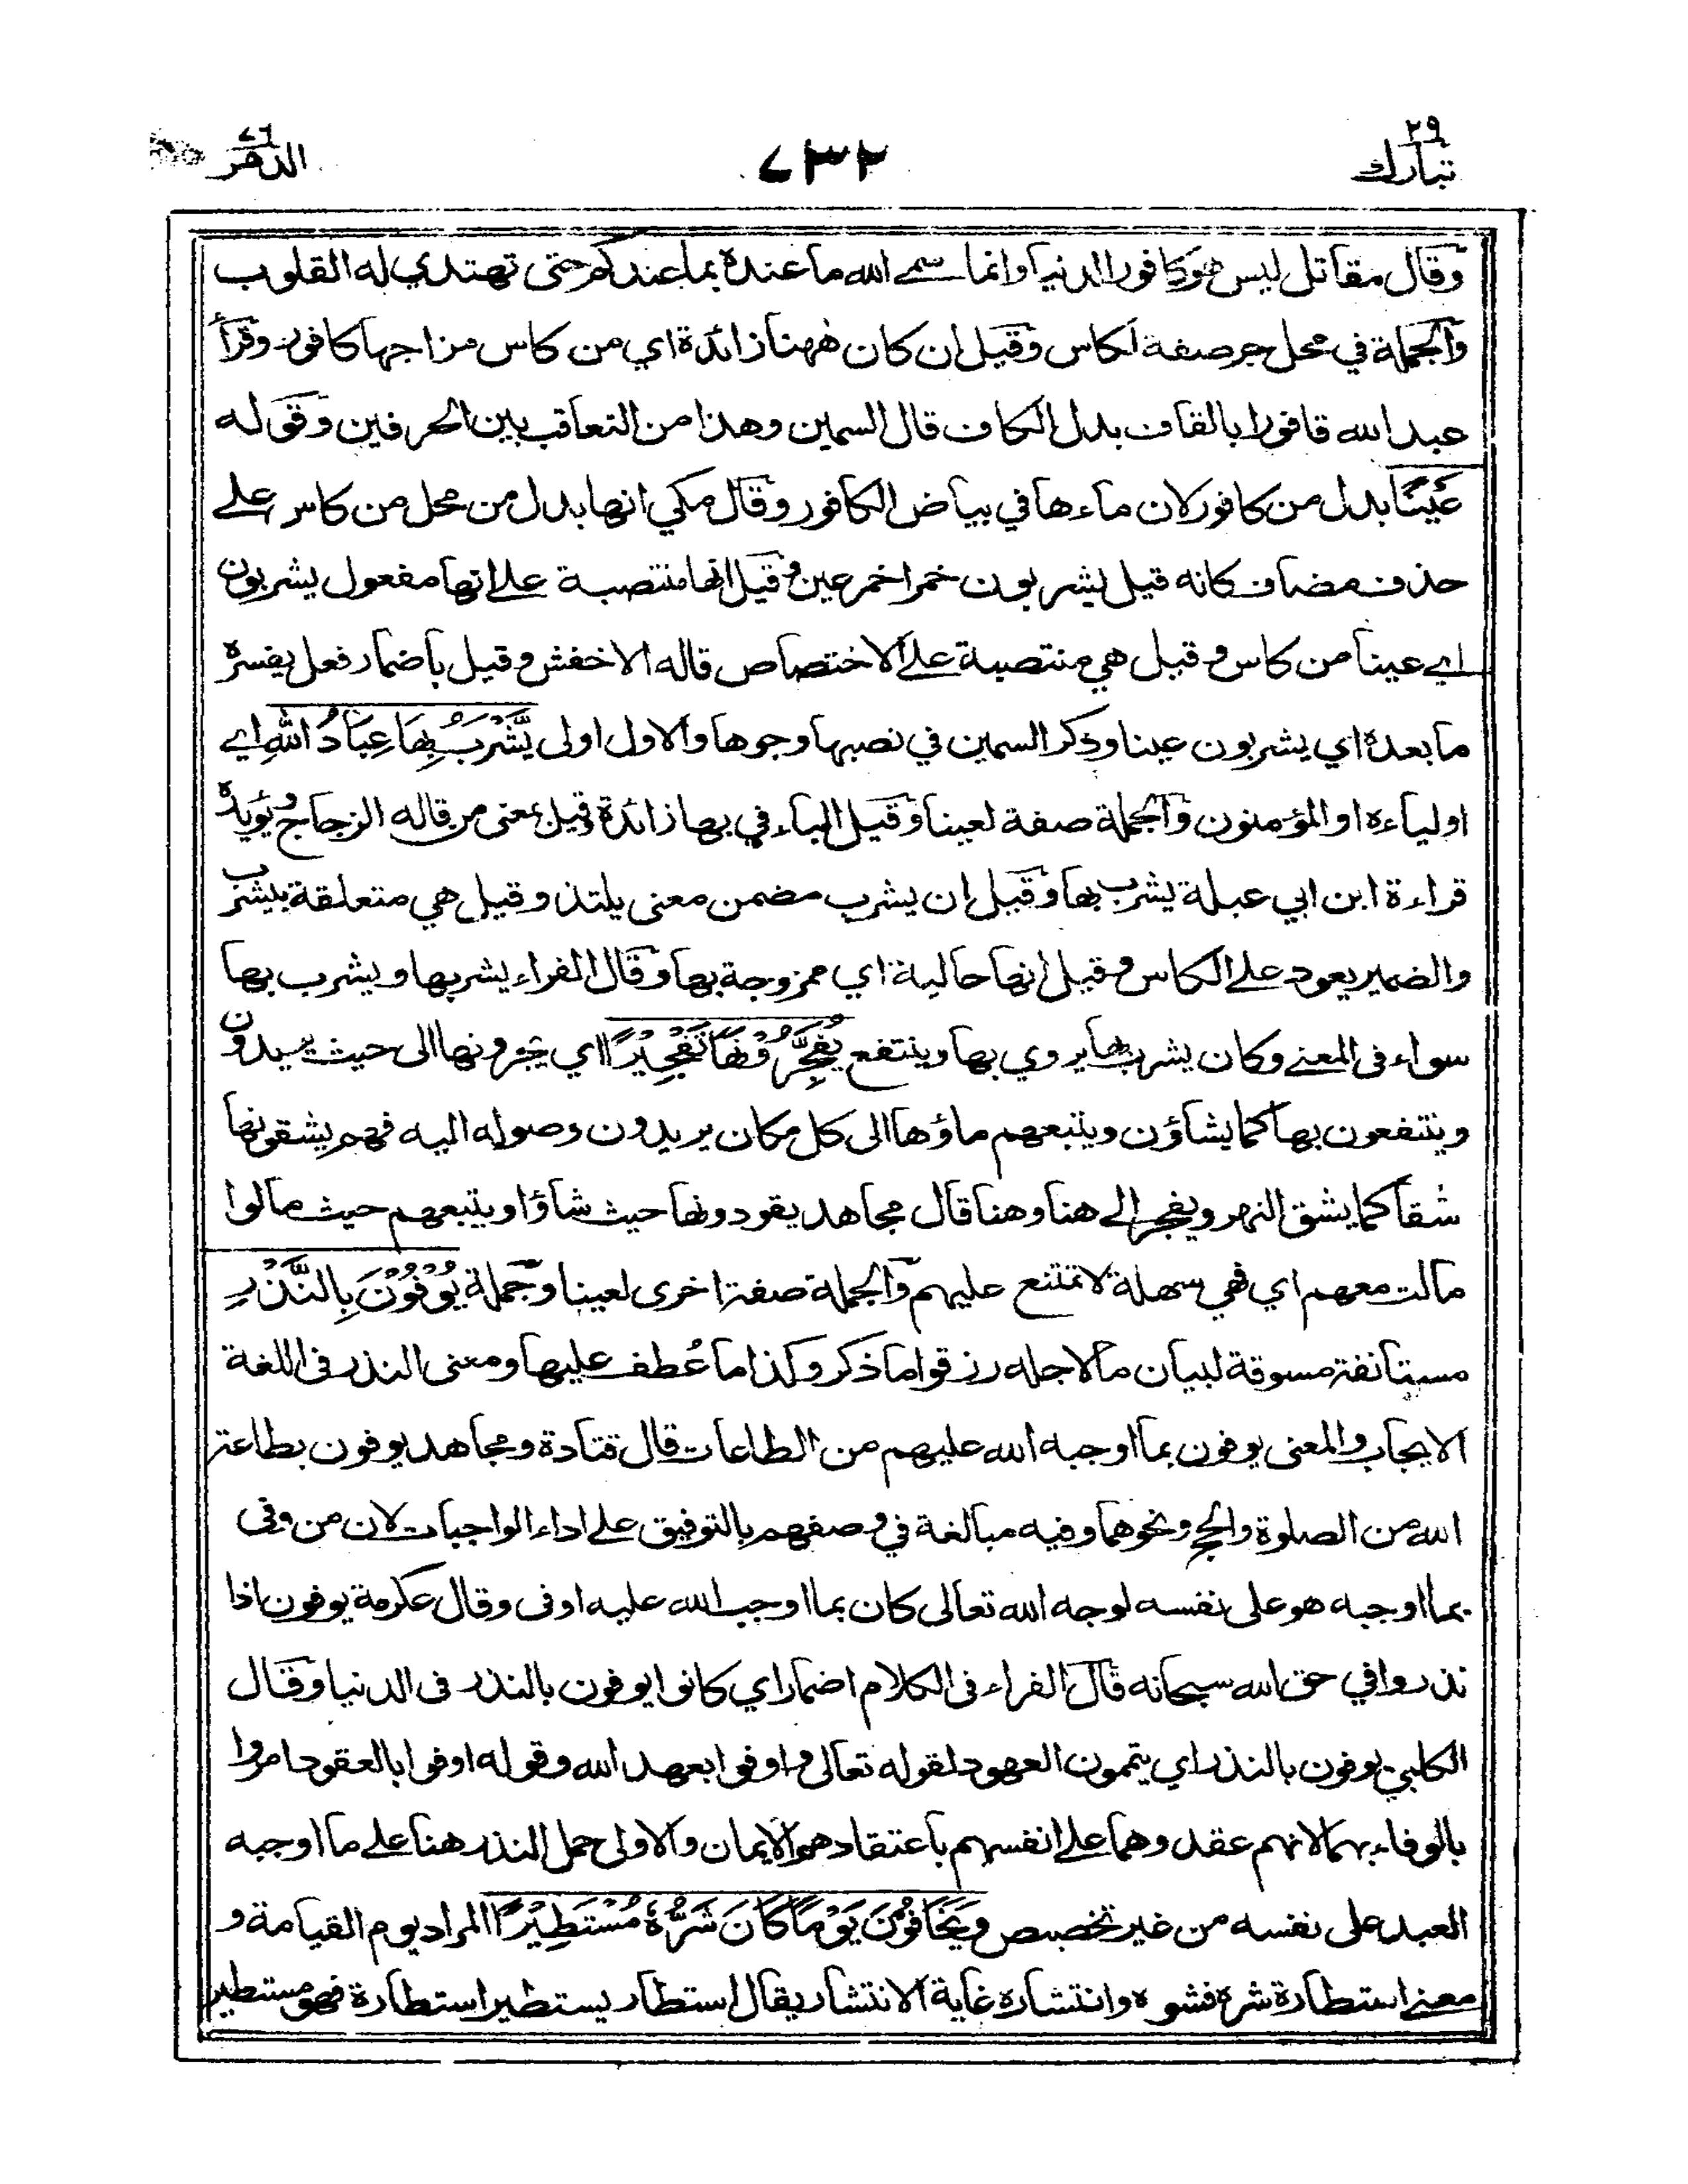 ٢٩
تبارك
٧٣٢
٧٦
الدهر
وقال مقاتل ليس هو كافور الدنيا وانما سمے الله ما عنده بما عندكم حتى تهتدي له القلوب
والجملة في محل جر صفة لكاس وقيل ان كان ههنا زائدة اي من كاس مزاجها كافور وقرأ
عبد الله قافورا بالقاف بدل الكاف قال السمين وهذا من التعاقب بين الحرفين وقوله
عَيْنًا بدل من كافور لان ماءها في بياض الكافور وقال مكي انها بدل من محل من كاس علے
حذف مضاف كانه قيل يشربون خمرا خمر عين وقيل انها منتصبة علے انها مفعول يشربون
اے عينا من كاس وقيل هي منتصبة علے الاختصاص قاله الاخفش وقيل باضمار فعل يفسره
ما بعده اي يشربون عينا وذكر السمين في نصبها وجوها والاول اولى يَّشْرَبُ بِهَا عِبَادُ اللهِ اے
اولياءه او المؤمنون والجملة صفة لعينا وقيل الباء في بها زائدة وقيل بمعنى من قاله الزجاج ويؤيده
قراءة ابن ابي عبلة يشربها وقيل ان يشرب مضمن معنى يلتذ وقيل هي متعلقة بيشرب
والضمير يعود علے الكاس وقيل انها حالية اي ممزوجة بها وقال الفراء يشربها ويشرب بها
سواء فى المعنے وكان يشرب بها يروي بها وينتفع يُفَجِّرُوْنَهَا تَفْجِيْرًا اي يجرونها الى حيث يريدون
وينتفعون بها كما يشاؤن ويتبعهم ماؤها الى كل مكان يريدون وصوله اليه فهم يشقونها
شقا كما يشق النهر ويفجر الے هنا وهنا قال مجاهد يقودونها حيث شاؤا ويتبعهم حيث مالوا
مالت معهم اي فهي سهلة لا تمتنع عليهم والجملة صفة اخرى لعينا وجملة يُوْفُوْنَ بِالنَّذْرِ
مستانفة مسوقة لبيان ما لاجله رزقوا ما ذكر وكذا ما عُطف عليها ومعنى النذر فى اللغة
الايجاب والمعنى يوفون بما اوجبه الله عليهم من الطاعات قال قتادة ومجاهد يوفون بطاعة
الله من الصلوة والحج ونحوهما وفيه مبالغة في وصفهم بالتوفيق علے اداء الواجبات لان من وفى
بما اوجبه هو على نفسه لوجه الله تعالى كان بما اوجب الله عليه اوفى وقال عكرمة يوفون اذا
نذروا في حق الله سبحانه قال الفراء فى الكلام اضمار اي كانوا يوفون بالنذر فى الدنيا وقال
الكلبي يوفون بالنذر اي يتممون العهود لقوله تعالى واوفوا بعهد الله وقوله اوفوا بالعقود امروا
بالوفاء بهما لانهم عقدوهما علے انفسهم باعتقادهم الايمان والاولى حمل النذر هنا علے ما اوجبه
العبد على نفسه من غير تخصيص وَيَخَافُوْنَ يَوْمًا كَانَ شَرُّهٗ مُسْتَطِيْرًا المراد يوم القيامة و
معنے استطارة شره فشوه وانتشاره غاية الانتشار يقال استطار يستطير استطارة فهو مستطير